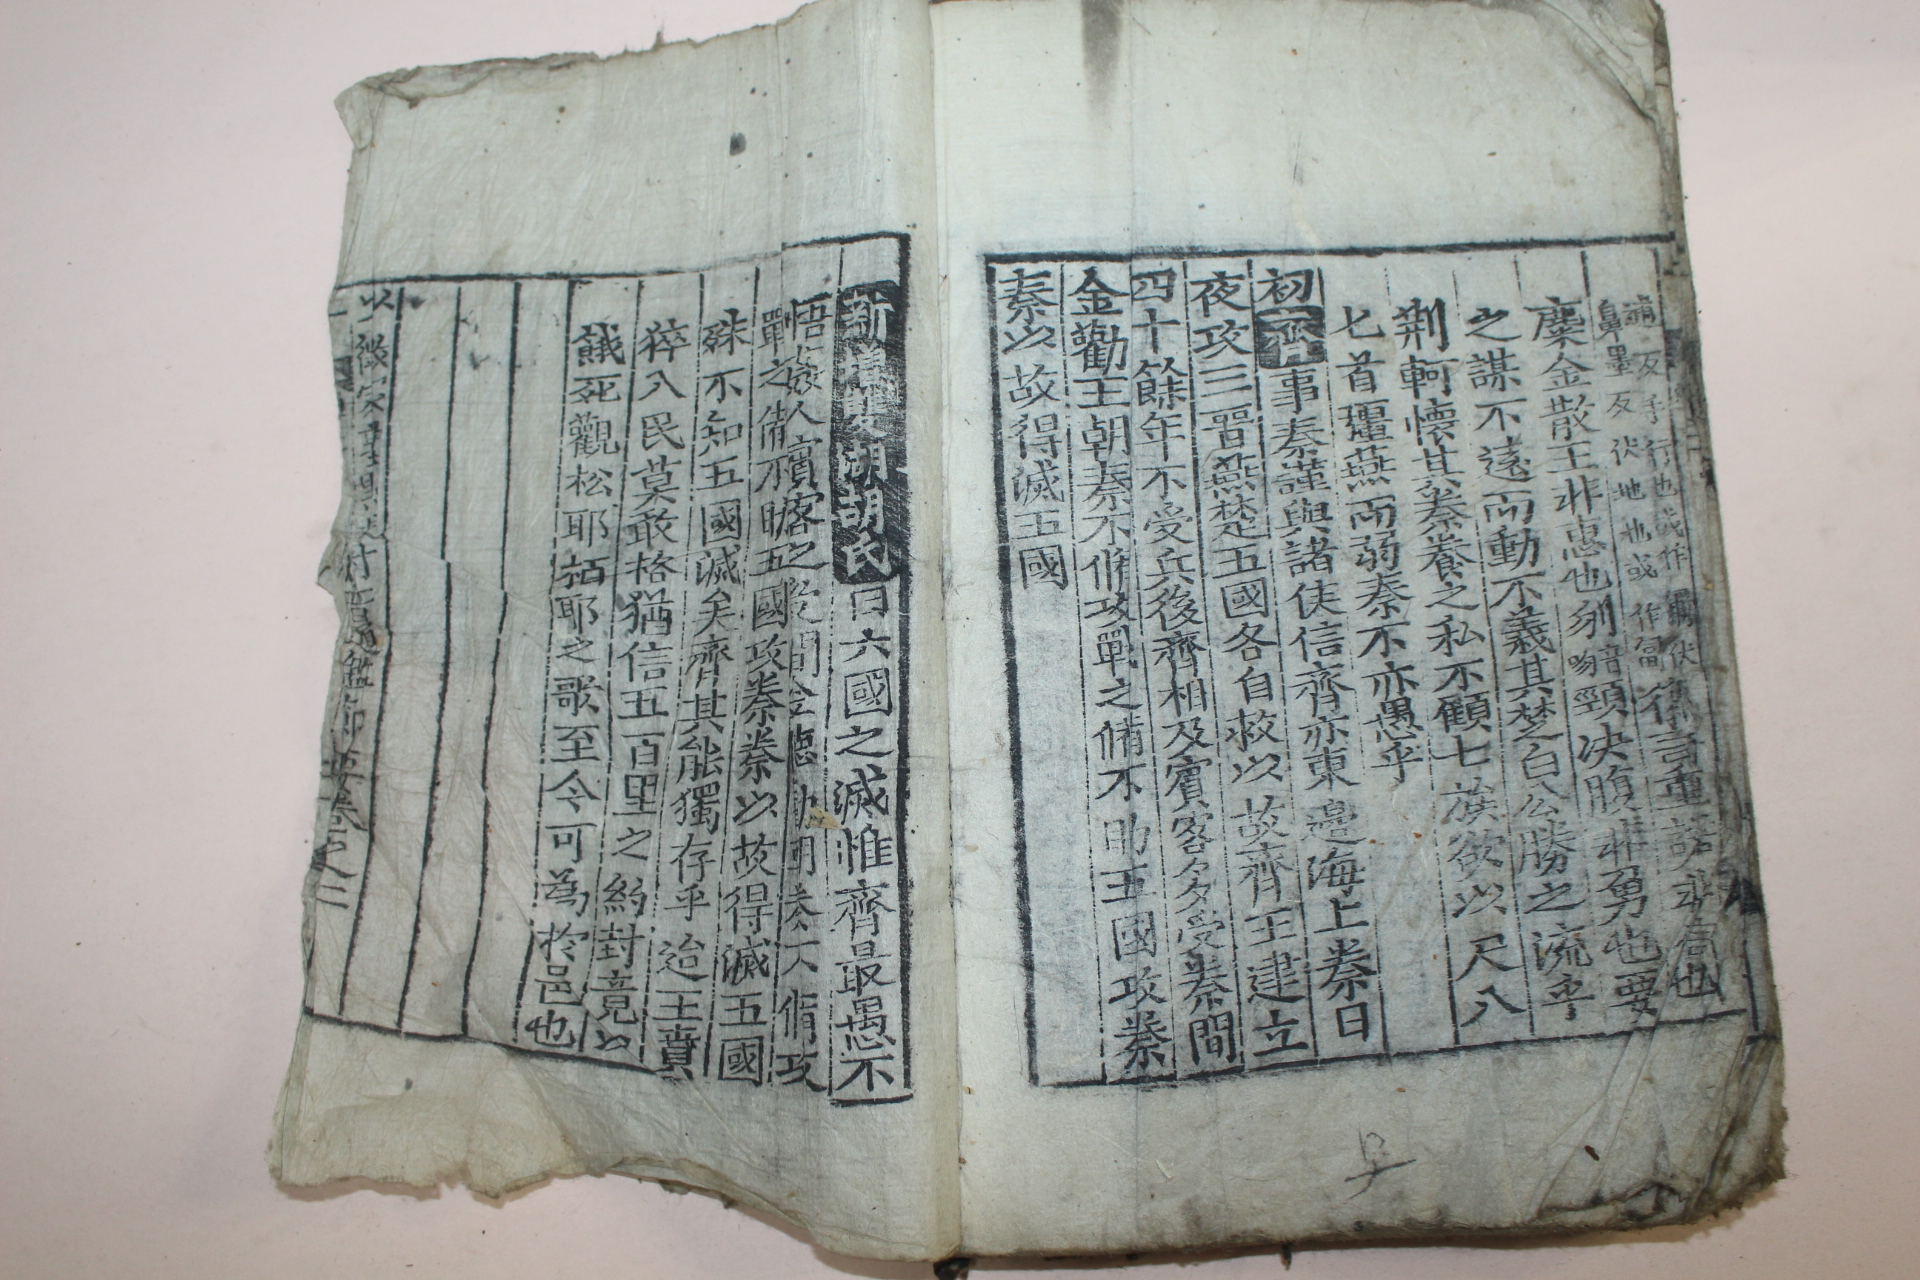 復言重諾非信也
糜金散玉非惠也刎頸决腹非勇也要
之謀不遠而動不義其楚白公勝之流乎
荆軻懷其豢養之私不顧七族欲以尺八
匕首彊燕而弱秦不亦愚乎
初齊事秦謹與諸侯信齊亦東邊海上秦日
夜攻三晉燕楚五國各自救以故齊王建立
四十餘年不受兵後齊相及賓客多受秦間
金勸王朝秦不脩攻戰之備不助五國攻秦
秦以故得滅五國
新增雙湖胡氏曰六國之滅惟齊最愚不
悟姦人賓客之受間金聽勸朝秦不脩攻
戰之備不助五國攻秦秦以故得滅五國
殊不知五國滅矣齊其能獨存乎迨王賁
猝入民莫敢格猶信五百里之約封竟以
餓死觀松耶栢耶之歌至今可為於邑也
通鑑節要卷之二